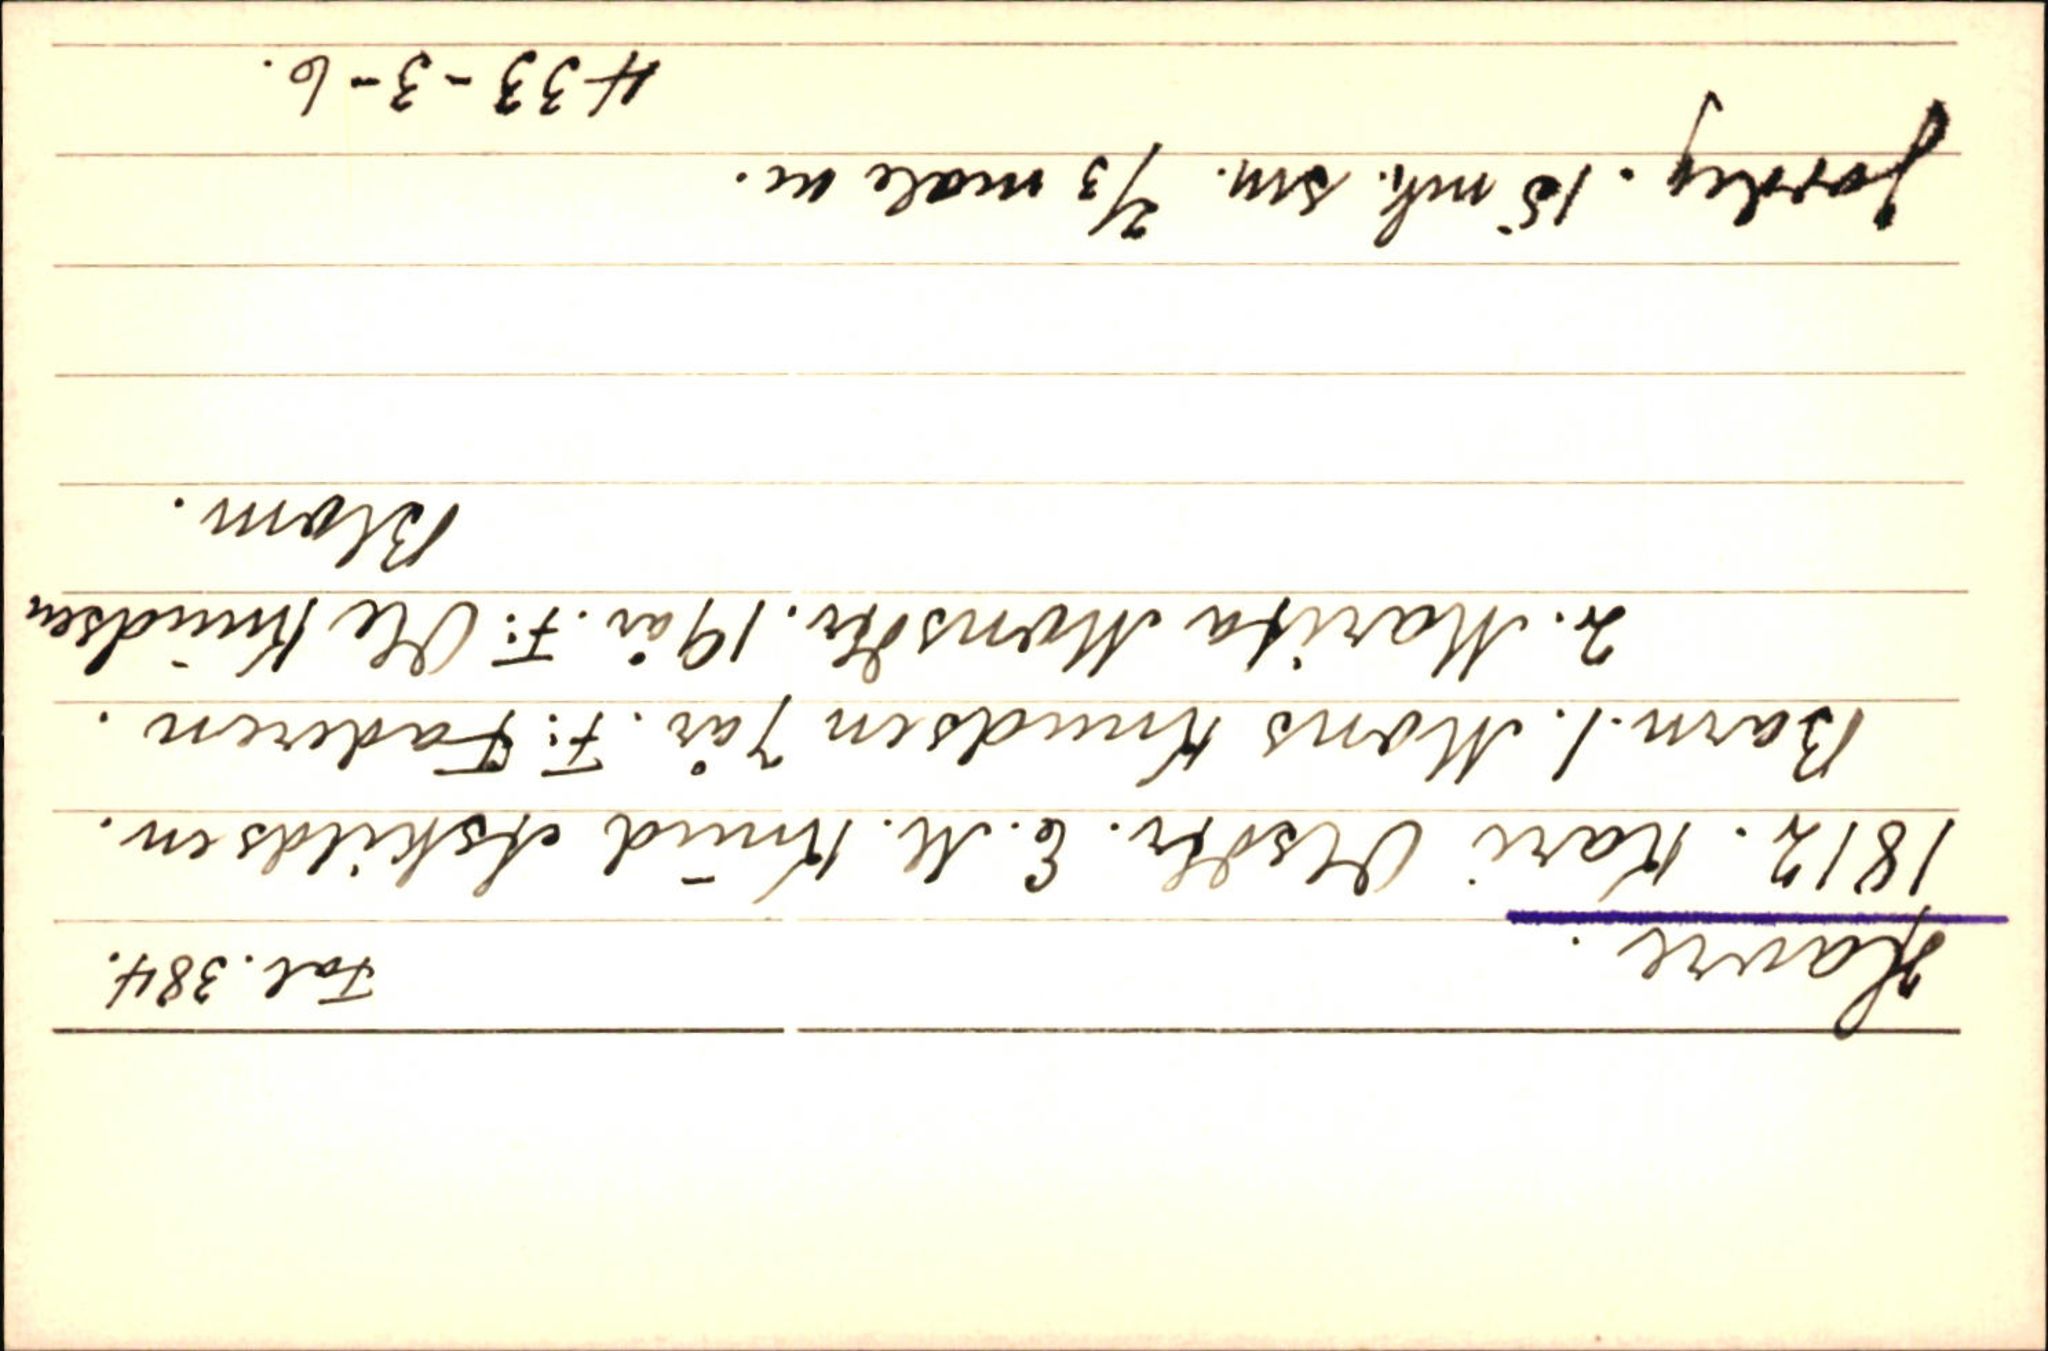 Havre. Fol. 384.
1812. Kari Olsdtr. E.M. Knud Askildsen.
Barn. 1. Mons Knudsen 7 år. F: Faderen.
2. Marita Monsdtr. 19 år. F: Ole Knudsen
Blom.
Jordeg. 15 mk. sm. 2/3 male
433-3-6.